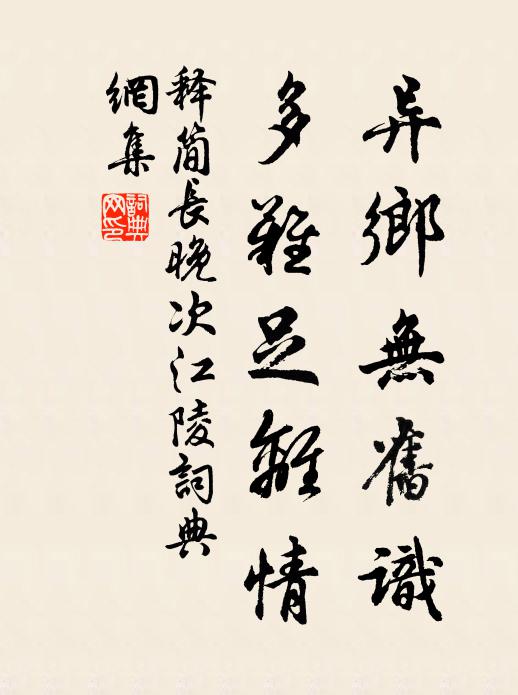 异鄉無舊識
多難足離情
释簡長晚次江陵詞典
網集
詞典
网印